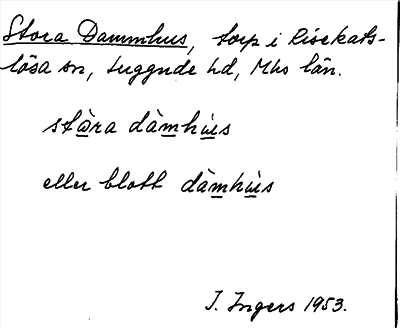 Stora Dammhus, torp i Risekats-
lösa sn, Luggude hd, Mhs län.
stàra dàmhus
eller blott dàmhus
I. Ingers 1953.